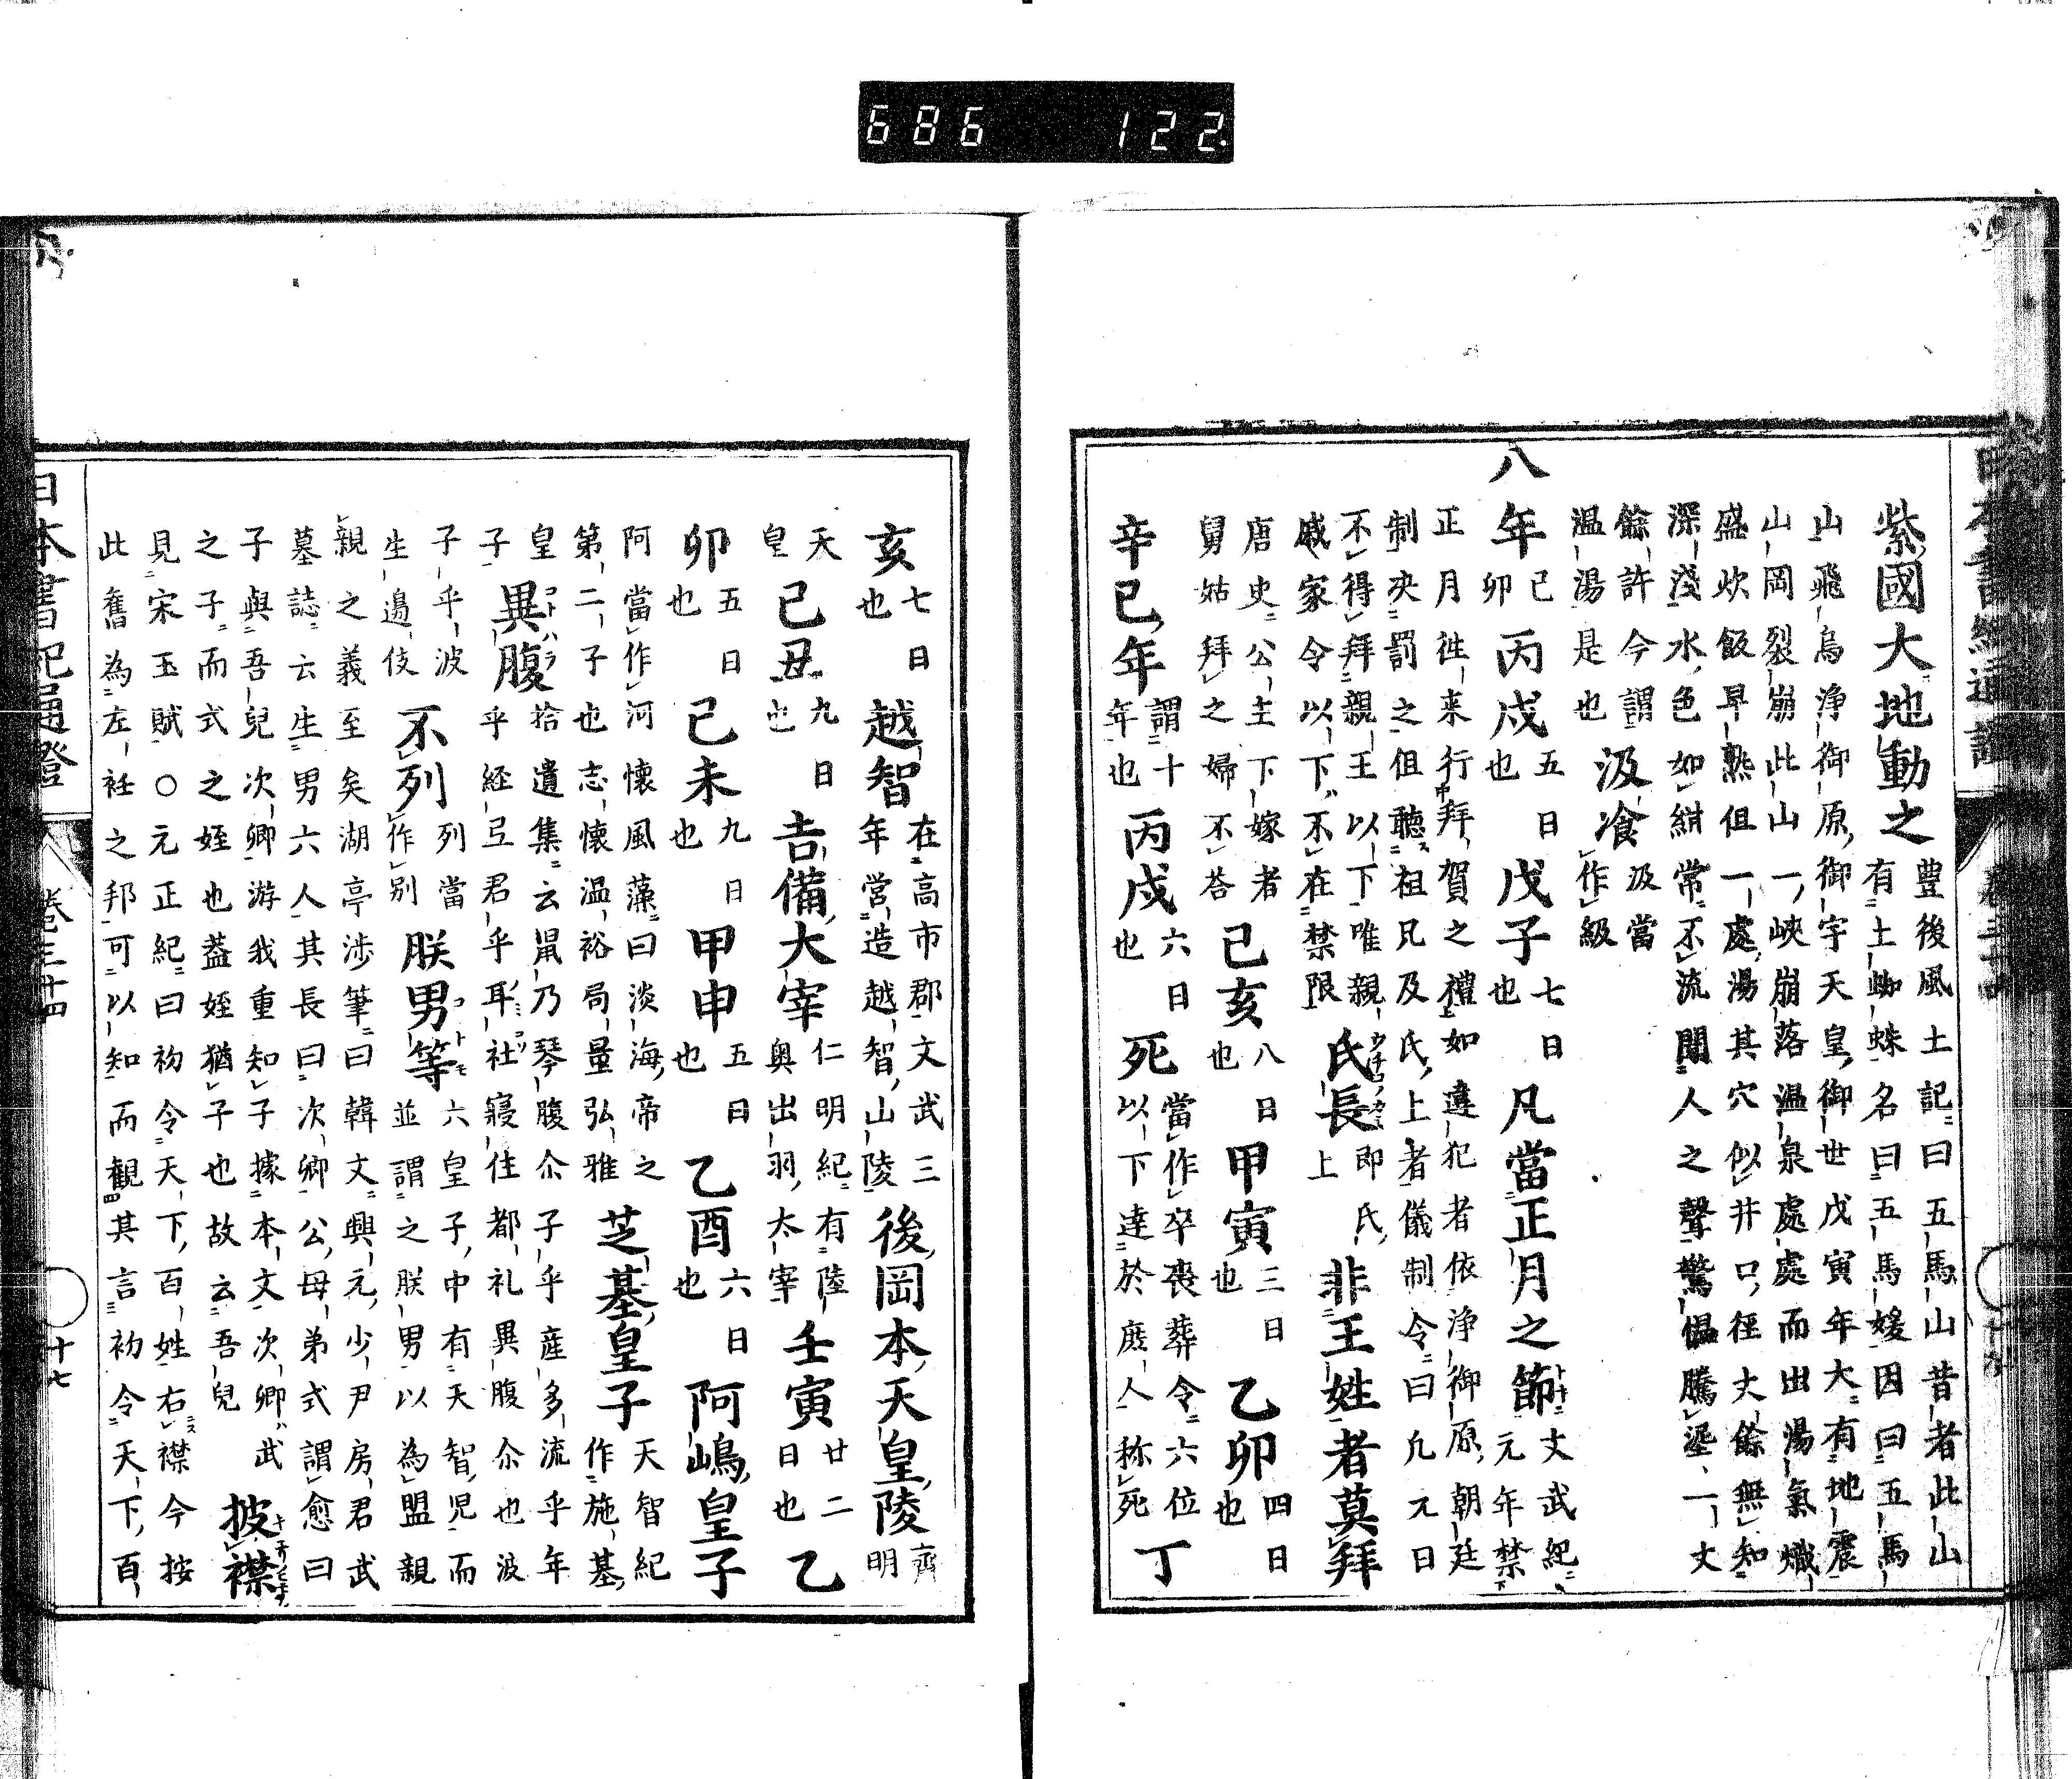 686 122
紫國大地動之 豊後風土記曰五馬山昔者此山
有土蜘蛛名曰五馬媛因曰五馬
山飛鳥浄御原御宇天皇御世戊寅年大有地震
山岡裂崩此山一峽崩落温泉處處而出湯氣熾
盛炊飯早熟但一處湯其穴似井口徑丈餘無知
深淺水色如紺常不流聞人之聲驚慍騰埿一丈
餘許今謂
温湯是也 汲飡 汲當
作級
八年 己
卯 丙戌 五日
也 戊子 七日
也 凡當正月之節 文武紀
元年禁
正月往來行拜賀之禮如違犯者依浄御原朝廷
制决罰之但聽祖兄及氏上者儀制令曰凢元日
不得拜親王以下唯親
戚家令以下不在禁限 氏長 即氏
上 非王姓者莫拜
唐史公主下嫁者
舅姑拜之婦不荅 己亥 八日
也 甲寅 三日
也 乙卯 四日
也
辛已年 謂十
年也 丙戌 六日
也 死 當作卒喪葬令六位
以下達於庶人称死 丁
亥 七日
也 越智 在高市郡文武三
年営造越智山陵 後岡本天皇陵 齊
明
天
皇 己丑 九日
也 吉備大宰 仁明紀有陸
奥出羽太宰 壬寅 廿二
日也 乙
卯 五日
也 己未 九日
也 甲申 五日
也 乙酉 六日
也 阿嶋皇子
阿當作河懷風藻曰淡海帝之
第二子也志懷温裕局量弘雅 芝基皇子 天智紀
作施基
皇
子 異腹 拾遺集云鼠乃琴腹尒子乎産多流乎年
乎経弖君乎耳社寢住都礼異腹尒也波
子乎波
生邉伎 不列 列當
作别 朕男等 六皇子中有天智児而
並謂之朕男以為盟親
親之義至矣湖亭渉筆曰韓文興元少尹房君武
墓誌云生男六人其長曰次卿公母弟式謂愈曰
子與吾兒次卿游我重知子據本文次卿武
之子而式之姪也葢姪猶子也故云吾兒 披襟
見宋玉賦○元正紀曰初令天下百姓右襟今按
此舊為左衽之邦可以知而観其言初令天下百
日本書紀通證 卷三十四 十七